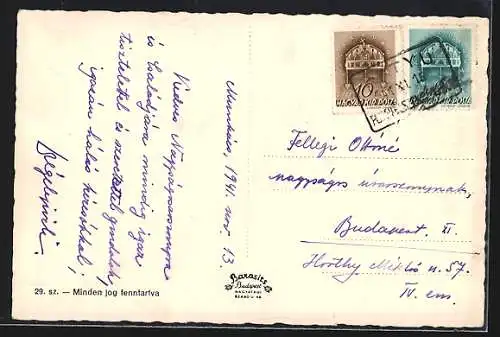 Munkács, 1941. nov. 13.
Kedves Nagyságos asszonyom
és családjára mindig igaz
tisztelettel és szeretettel gondolok,
igazán hálás
Fellegi Ottóné
nagyságos úrasszonynak,
Budapest. XI.
Horthy Miklós u. 57.
IV. em.
10
MAGYAR KIR. POSTA
MAGYAR KIR. POSTA
Barasits
Budapest
29. sz. — Minden jog fenntartva